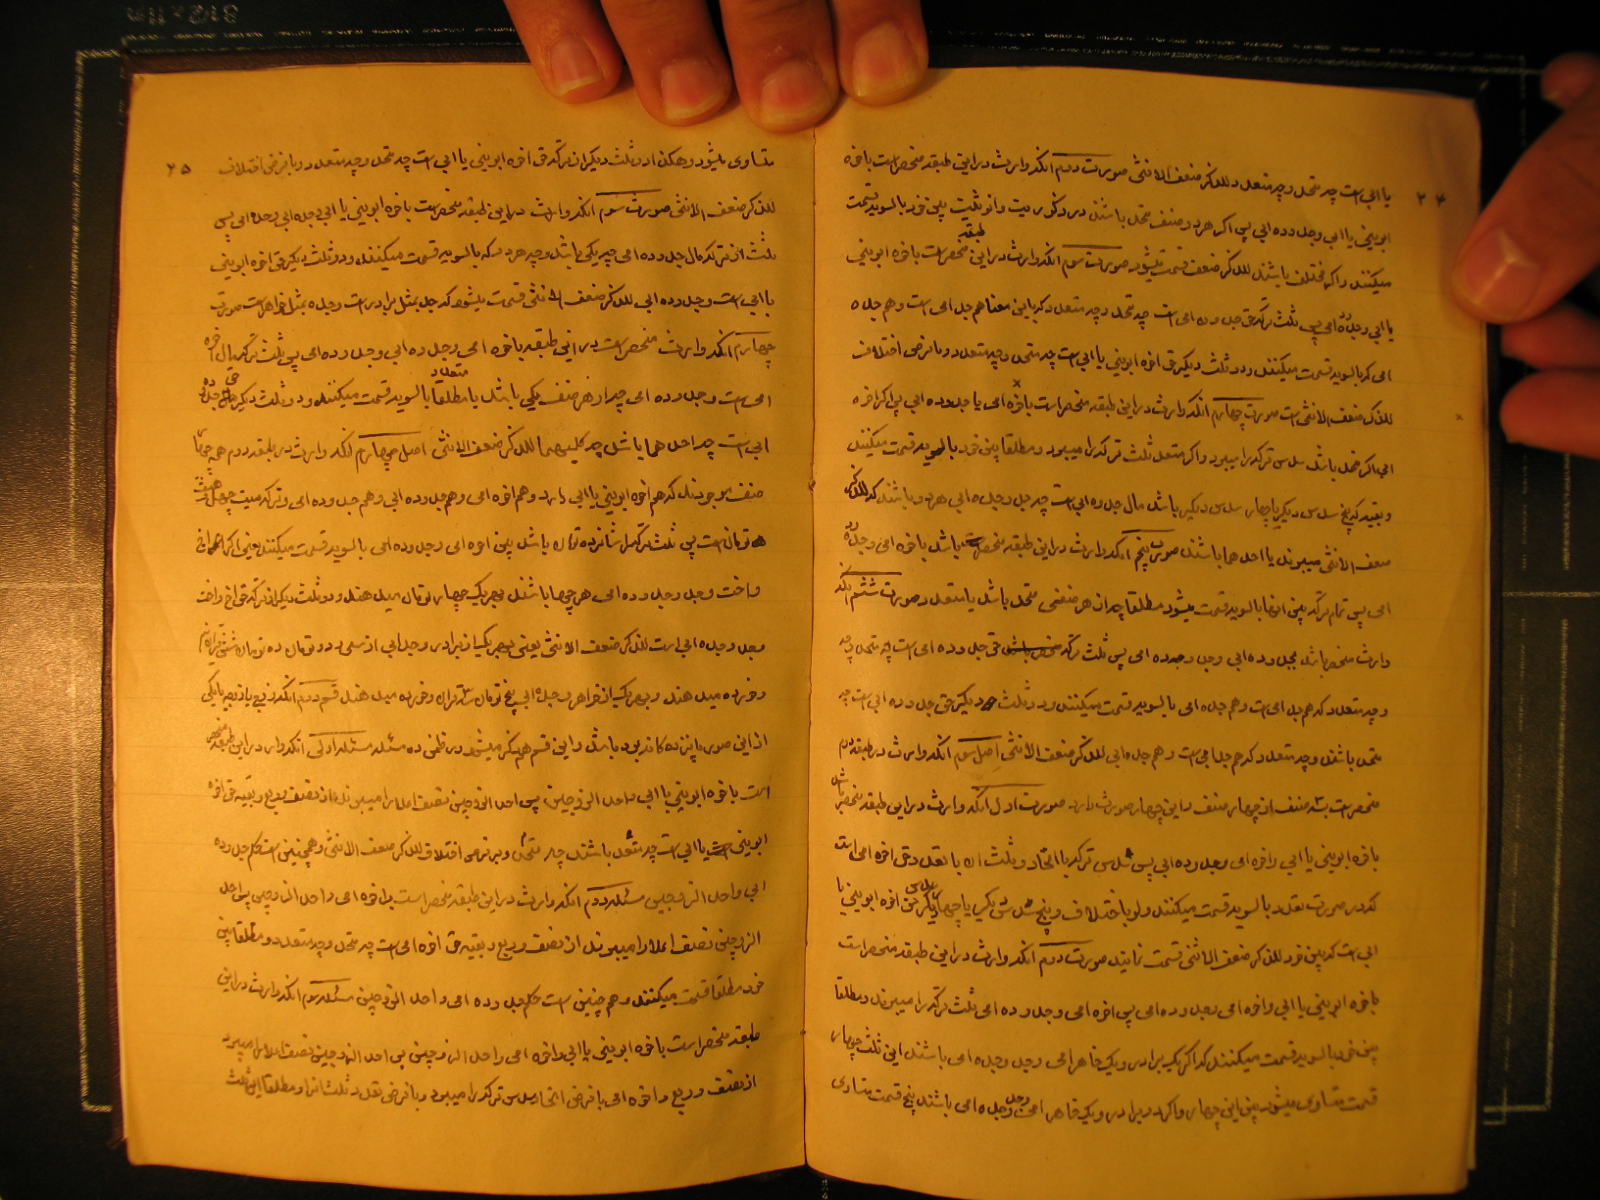 ۲۴
یا ابی است چه متحد و چه متعدد للذکر ضعف الانثی صورت دوم آنکه وارث در این طبقه منحصر است باخوه
ابوینی یا ابی و جد وده ابی پس اگر هر دو صنف متحد باشند در ذکوریت و انوثیت بین خود بالسویه قسمت
میکنند و اگر مختلف باشند للذکر ضعف قسمت میشود صورت سوم آنکه وارث در این طبقه منحصر است باخوه ابوینی
یا ابی و جد وده امی پس ثلث ترکه حق جد وده امی است چه متحد و چه متعدد که باین معنا هم جد امی است و هم جده
امی که بالسویه قسمت میکنند و دو ثلث دیگر حق اخوه ابوینی یا ابی است چه متحد و چه متعدد و با فرض اختلاف
للذکر ضعف الانثی است صورت چهارم آنکه وارث در این طبقه منحصر است باخوه امی یا جد وده ابی پس اگر اخوه
امی اگر متحد باشد سدس ترکه را میبرد و اگر متعدد ثلث ترکه را میبرد و مطلقا بین خود بالسویه قسمت میکنند
و بقیه که پنج سدس دیگر یا چهار سدس دیگر باشد مال جد وده ابی است چه جد و جده ابی هر دو باشند که للذکر
ضعف الانثی میبرند یا احدهما باشند صورت پنجم آنکه وارث در این طبقه منحصر باشد باخوه امی و جد وده
امی پس تمام ترکه بین آنها بالسویه قسمت میشود مطلقا چه از هر صنفی متحد باشد یا متعدد و صورت ششم آنکه
وارث منحصر باشد بجد وده ابی و جد وده امی پس ثلث ترکه حق جد وده امی است چه متحد و چه
و چه متعدد که هم جد امی است و هم جده امی بالسویه قسمت میکنند و دو ثلث دیگر حق جد وده ابی است چه
متحد باشند و چه متعدد که هم جد ابی است و هم جده ابی للذکر ضعف الانثی اصل سوم آنکه وارث در طبقه دوم
منحصر است بسه صنف از چهار صنف و این چهار صورت دارد صورت اول آنکه وارث در این طبقه منحصر باشد
باخوه ابوینی یا ابی و اخوه امی و جد وده ابی پس سدس ترکه با اتحاد و ثلث آن با تعدد حق اخوه امی است
که در صورت تعدد بالسویه قسمت میکنند ولو با اختلاف و پنج سدس دیگر یا چهار سدس دیگر حق اخوه ابوینی یا
ابی است که بین خود للذکر ضعف الانثی قسمت نمایند صورت دوم آنکه وارث در این طبقه منحصر است
باخوه ابوینی یا ابی و اخوه امی و جد وده امی پس اخوه امی و جد وده امی ثلث ترکه را میبرند و مطلقا
بین خود بالسویه قسمت میکنند که اگر یک برادر و یک خواهر امی و جد و جده امی باشند این ثلث چهار
قسمت متساوی میشود بین این چهار و اگر دو برادر و یک خواهر امی و جد و جده امی باشند پنج قسمت متساوی
۲۵
متساوی میشود و هکذا و دو ثلث دیگر از ترکه حق اخوه ابوینی یا ابی است چه متحد و چه متعدد و با فرض اختلاف
للذکر ضعف الانثی صورت سوم آنکه وارث در این طبقه منحصر است باخوه ابوینی یا ابی و جد وده ابی و جد وده امی پس
ثلث از ترکه مال جد وده امی چه یکی باشد و چه هر دو که بالسویه قسمت میکنند و دو ثلث دیگر حق اخوه ابوینی
یا ابی است و جد وده ابی للذکر ضعف الانثی قسمت میشود که جد بمثل برادر است و جده بمثل خواهر است صورت
چهارم آنکه وارث منحصر است در این طبقه باخوه امی و جد وده ابی و جد وده امی پس ثلث ترکه مال اخوه
امی است و جد وده امی چه از هر صنف یکی باشد یا متعدد مطلقا بالسویه قسمت میکنند و دو ثلث دیگر حق جد وده
ابی است چه احدهما باشد چه کلیهما للذکر ضعف الانثی اصل چهارم آنکه وارث در طبقه دوم هر چهار
صنف موجودند که هم اخوه ابوینی یا ابی دارد و هم اخوه امی و هم جد وده ابی و هم جد وده امی و ترکه میت چهل و هشت
تومان است پس ثلث ترکه که شانزده تومان باشد بین اخوه امی و جد وده امی بالسویه قسمت میکنند یعنی اگر اخ
و اخت و جد و جد وده امی هر چهار باشند بهر یک چهار تومان میدهند و دو ثلث دیگر از ترکه حق اخ و اخت
و جد و جده ابی است للذکر ضعف الانثی یعنی بهر یک از برادر و جد ابی از سی و دو تومان ده تومان و شش قران
و خورده میدهند و بهر یک از خواهر و جده ابی پنج تومان و سه قران و خورده میدهند قسم دوم آنکه زوج یا زوجه با یکی
از این صور پانزده گانه بوده باشد و این قسم هم ذکر میشود در ضمن ده مسئله مسئله اولی آنکه وارث در این طبقه منحصر
است باخوه ابوینی یا ابی و احد الزوجین پس احد الزوجین نصیب اعلا را میبرند از نصف و ربع و بقیه حق اخوه
ابوینی یا ابی است چه متعدد باشند چه متحد و در فرض اختلاف للذکر ضعف الانثی و همچنین است حکم جد وده
ابی و احد الزوجین مسئله دوم آنکه وارث در این طبقه منحصر است باخوه امی و احد الزوجین پس احد
الزوجین نصیب اعلا را میبرند از نصف و ربع و بقیه حق اخوه امی است چه متحد و چه متعدد و مطلقا بین
خود مطلقا قسمت میکنند و هم چنین است حکم جد وده امی و احد الزوجین مسئله سوم آنکه وارث در این
طبقه منحصر است باخوه ابوینی یا ابی و اخوه امی و احد الزوجین پس احد الزوجین نصیب اعلا را میبرد
از نصف و ربع و اخوه امی با فرض اتحاد سدس ترکه را میبرد و با فرض تعدد ثلث آنرا و مطلقا این ثلث